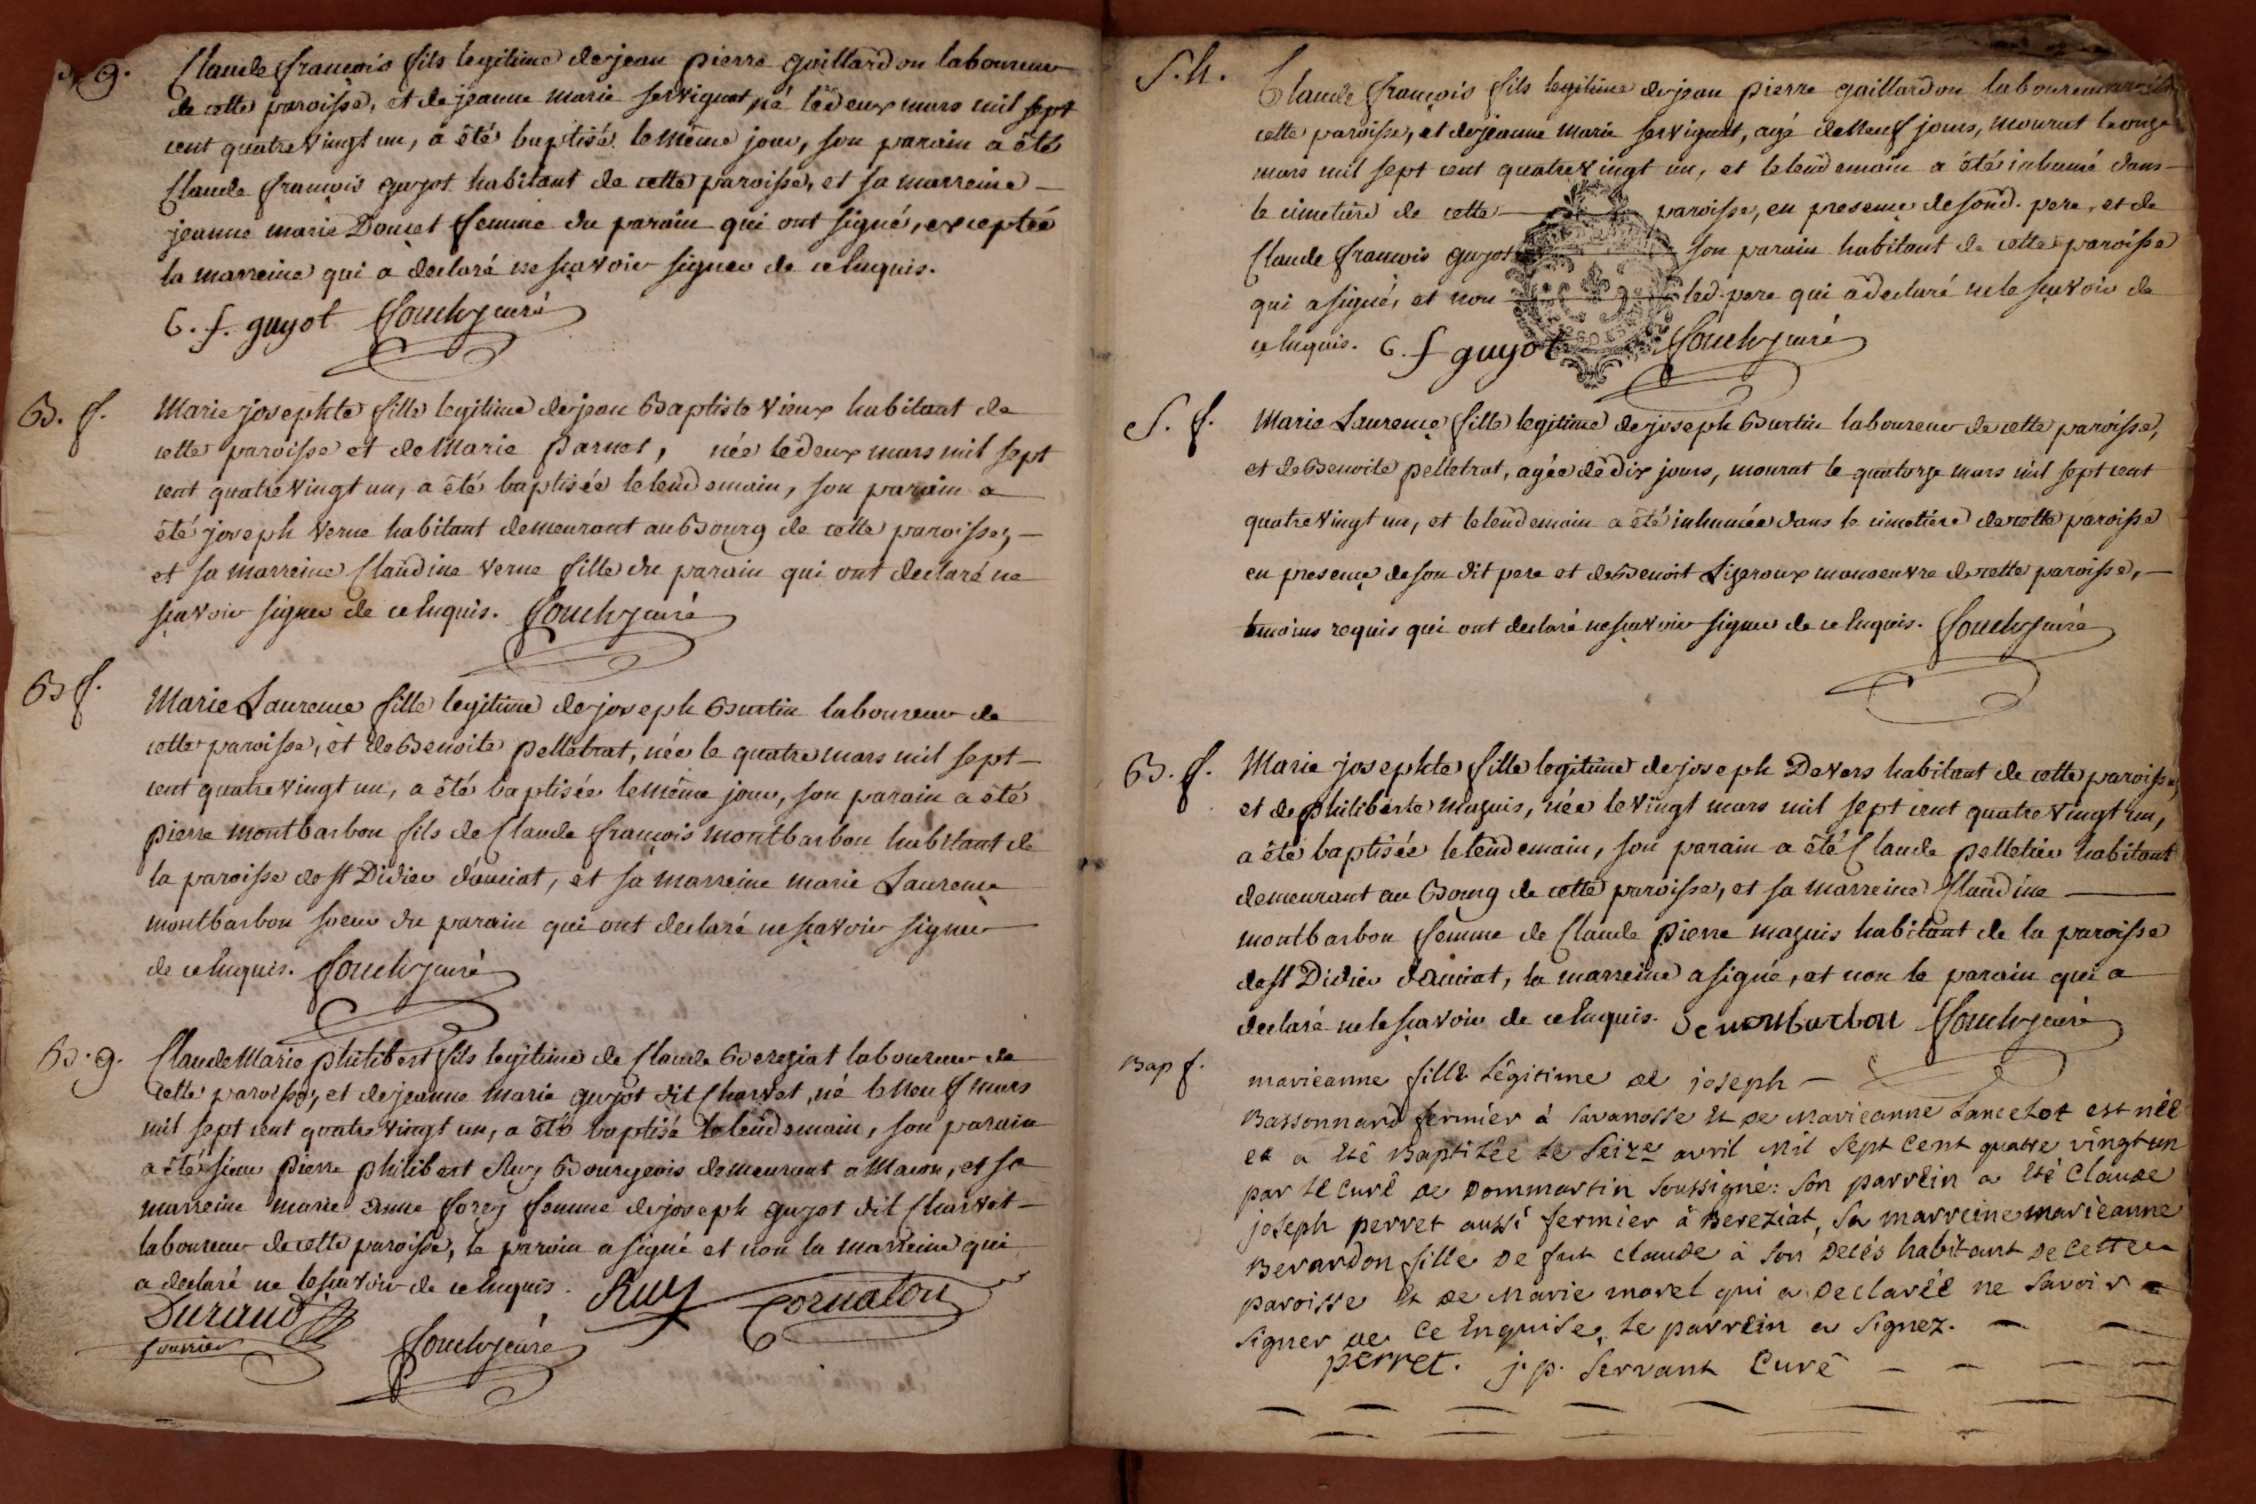 B. g.
Claude françois fils legitime de jean pierre gaillardon laboureur
de cette paroisse, et de jeanne marie servignat, né le deux mars mil sept
cent quatre vingt un, a été baptisé le même jour, son parain a été
Claude françois guyot habitant de cette paroisse, et sa marreine —
jeanne marie Doucet femme du parain qui ont signé, exceptée
la marreine qui a declaré ne sçavoir signer de ce Enquis.
C. f. guyot curé
B. f.
Marie josephte fille legitime de jean Baptiste Vieux habitant de
cette paroisse et de Marie Parnet, née le deux mars mil sept
cent quatre vingt un, a été baptisée le lendemain, son parain a
été joseph Verne habitant demeurant au Bourg de cette paroisse, —
et sa marreine Claudine Verne fille du parain qui ont declaré ne
sçavoir signer de ce Enquis. curé
B f.
Marie Laurence fille legitime de joseph Burtin laboureur de
cette paroisse, et de Benoite pelletrat, née le quatre mars mil sept —
cent quatre vingt un, a été baptisée le même jour, son parain a été
pierre montbarbon fils de Claude françois montbarbon habitant de
la paroisse de st Didier d'auciat, et sa marreine marie Laurence
montbarbon soeur du parain qui ont declaré ne sçavoir signer
de ce Enquis. curé
B. g.
Claude Marie philibert fils legitime de Claude Bereziat laboureur de
cette paroisse, et de jeanne marie guyot dit Charvet, né le neuf mars
mil sept cent quatre vingt un, a été baptisé le lendemain, son parain
a été sieur pierre philibert Ruy Bourgeois demeurant a Macon, et sa
marreine marie anne forey femme de joseph guyot dit Charvet —
laboureur de cette paroisse, le parain a signé et non la marreine qui
a declaré ne le sçavoir de ce Enquis. Ruy Cornaton
Durand
curé
S. h.
Claude françois fils legitime de jean pierre gaillardon laboureur
cette paroisse, et de jeanne marie servignat, agé de neuf jours, mourut le onze
mars mil sept cent quatre vingt un, et le lendemain a été inhumé dans —
le cimetiere de cette — paroisse, en presence de sond. pere, et de
Claude francois guyot son parain habitant de cette paroisse
qui a signé, et non — led. pere qui a declaré ne le sçavoir de
ce Enquis. C. f guyot curé
S. f.
Marie Laurence fille legitime de joseph Burtin laboureur de cette paroisse,
et de Benoite pelletrat, agée de dix jours, mourut le quatorze mars mil sept cent
quatre vingt un, et le lendemain a été inhumée dans le cimetiere de cette paroisse
en presence de son dit pere et de Benoit Ligeroux manoeuvre de cette paroisse, —
temoins requis qui ont declaré ne sçavoir signer de ce Enquis. curé
B. f.
Marie josephte fille legitime de joseph Devers habitant de cette paroisse,
et de philiberte mazuis, née le vingt mars mil sept cent quatre vingt un,
a été baptisée le lendemain, son parain a été Claude pelletier habitant
demeurant au Bourg de cette paroisse, et sa marreine Claudine —
montbarbon femme de Claude pierre mazuis habitant de la paroisse
de st Didier d'auciat, la marreine a signé, et non le parain qui a
declaré ne le sçavoir de ce Enquis. De montbarbon curé
Bap f.
marieanne fille légitime de joseph —
Bassonnard fermier à Lavanosse et de marieanne Lancelot est née
et a été Baptisée le Seize avril mil sept cent quatre vingt un
par le curé de Dommartin soussigné: son parrein a été Claude
joseph perret aussi fermier à Bereziat, sa marreine marieanne
Berardon fille de fut claude à son decés habitant de cette
paroisse et de marie morel qui a declarée ne savoir
signer de ce Enquise, le parrein a signez. — —
perret. j. p. Servant Curé — — — —